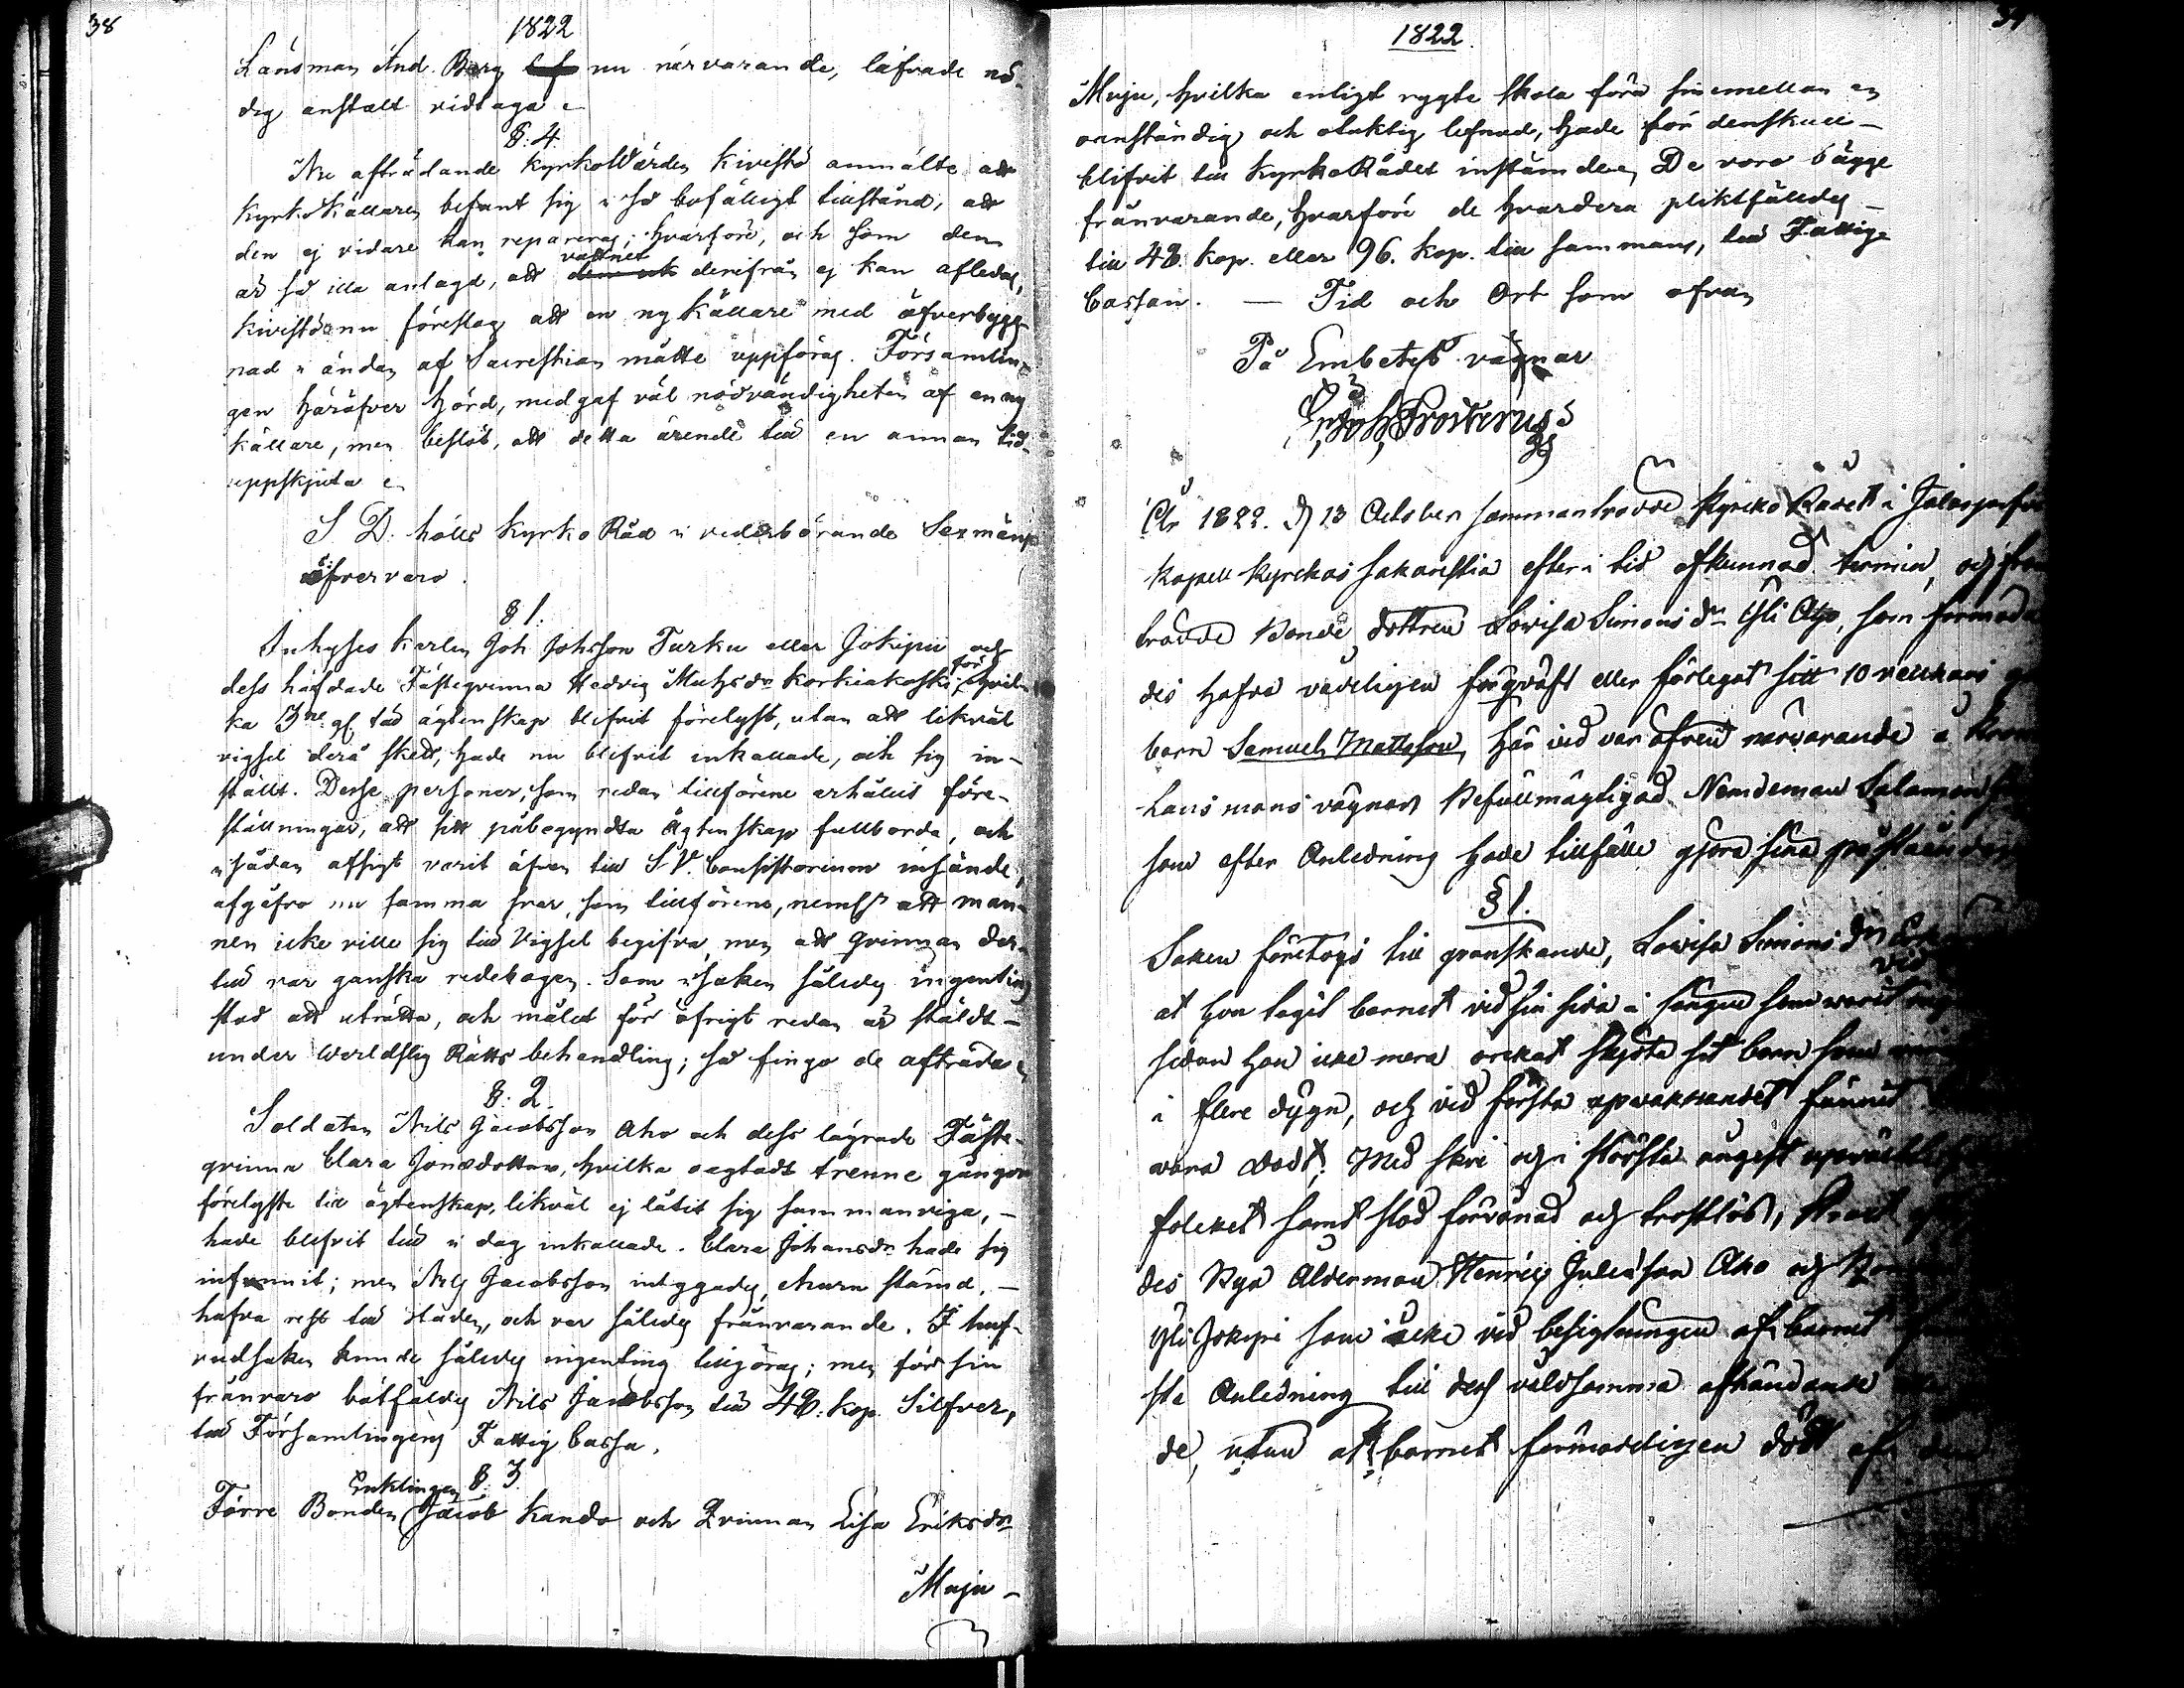 38
1822
Länsman And. Berg nu närvarande, låfvade nö-
dig anstalt vidtaga
§. 4.
Nu afträdande KyrkoWärden Kivistö anmälte att
KyrkoKällaren befant sig i så bofälligt tillstånd, att
den ej vidare kan repareras; hvarföre, och som den
är så illa anlagd, att vattnet derifrån ej kan afledas,
Kivistö nu föreslog att en ny Källare med öfverbygg-
nad i ändan af Sacristian måtte uppföras. Församlin-
gen häröfver hörd, medgaf väl nödvändigheten af en ny
källare, men beslöt, att detta ärende till en annan tid
uppskjuta
S. D. hölls Kyrko Råd i vederbörande Sexmäns
öfvervaro.
§ 1.
Inhyses Karlen Joh. Johsson Turku eller Jokipii och
dess häfdade Fästeqvinna Hedvig Mathsdr Korkiakoski, hvil-
ka 3ne gr till ägtenskap blifvit förelyst, utan att likväl
vigsel derå skett, hade nu blifvit inkallade, och sig in-
ställt. Desse personer, som redan tillförene erhållit före-
ställningar, att sitt påbegyndta Ägtenskap fullborda, och
i sådan afsigt varit äfven till S.V. Consistorium insände,
afgåfvo nu samma svar, som tillförene, nemlr att man-
nen icke ville sig till Vigsel begifva, men att qvinnan der-
till var ganska redebogen. Som i saken således ingenting
stod att uträtta, och målet för öfrigt redan är stäldt
under Werldslig Rätts behandling; så fingo de afträda
§. 2.
Soldaten Nils Jacobsson Aho och dess lägrade Fäste-
qvinna Clara Jonædotter, hvilka oagtadt trenne gångor
förelyste till ägtenskap, likväl ej låtit sig sammanviga, -
hade blifvit till i dag inkallade. Clara Johansdr hade sig
infunnit; men Nils Jacobsson intygades, ehuru stämd, -
hafva rest till staden, och var således frånvarande. I huf-
vudsaken kunde således ingenting tillgöras; men för sin
frånvaro bötfäldes Nils Jacobsson till 48. kop. Silfver,
till Församlingens Fattig Cassa.
§. 3.
Enklingen
Förre Bonden Jacob Kando och Qvinnan Lisa Eriksdr
Muju -
1822.
Muju, hvilka enligt rygte skola föra sinemellan en
oanständig och otuktig lefnad, hade för denskull -
blifvit till KyrkoRådet instämde. De voro bägge
frånvarande, hvarföre de hvardera pliktfälldes -
till 48. kop. eller 96. kop. tillsammans, till Fattig-
Cassan. — Tid och Ort som ofvan
På Embetets vägnar
Joh. Frosterus
År 1822. d 13 October sammanträdde Kyrko Rådet i Jalasjärfvi
Kapell Kyrckas Sakarstia efter i tid afkunnad termin, och fram
trädde Bonde dottren Lovisa Simons dr Yli Aho, som förmoda
des hafva vådeligen förqväft eller förlegat sitt 10 veckors ga
barn Samuel Mattsson, här vid var äfven närvarande å Krono
Länsmans vägnar Befullmägtigad Nämdeman Salamon
som efter Anledning hade tillfälle gjöra sina påståenden
§ 1.
Saken företogs till granskande, Lovisa Simons dr
at hon tagit barnet vid sin sida i sängen som warit
sedan hon icke mera orckat skjöta sit barn som
i flere dygn, och vid första upvaknandet funnit
vara dödt; Med skri och i största ångest upväckt
folcket samt stod förvånad och tröstlös; Strax
des Bya Alderman Henric Juliusson Aho och
Yli Jokipi som icke vid besigtningen af barnet
sta Anledning till des våldsamma afhändande
de, utan att barnet förmodeligen dödt af den